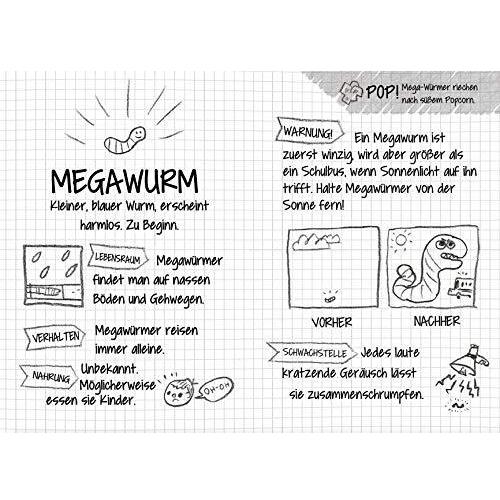 MEGAWURM
Kleiner, blauer Wurm, erscheint
harmlos. Zu Beginn.
LEBENSRAUM Megawürmer
findet man auf nassen
Böden und Gehwegen.
VERHALTEN Megawürmer reisen
immer alleine.
NAHRUNG Unbekannt.
Möglicherweise
essen sie Kinder.
OH-OH
POP! Mega-Würmer riechen
nach süßem Popcorn.
WARNUNG! Ein Megawurm ist
zuerst winzig, wird aber größer als
ein Schulbus, wenn Sonnenlicht auf ihn
trifft. Halte Megawürmer von der
Sonne fern!
VORHER NACHHER
SCHWACHSTELLE Jedes laute
kratzende Geräusch lässt
sie zusammenschrumpfen.